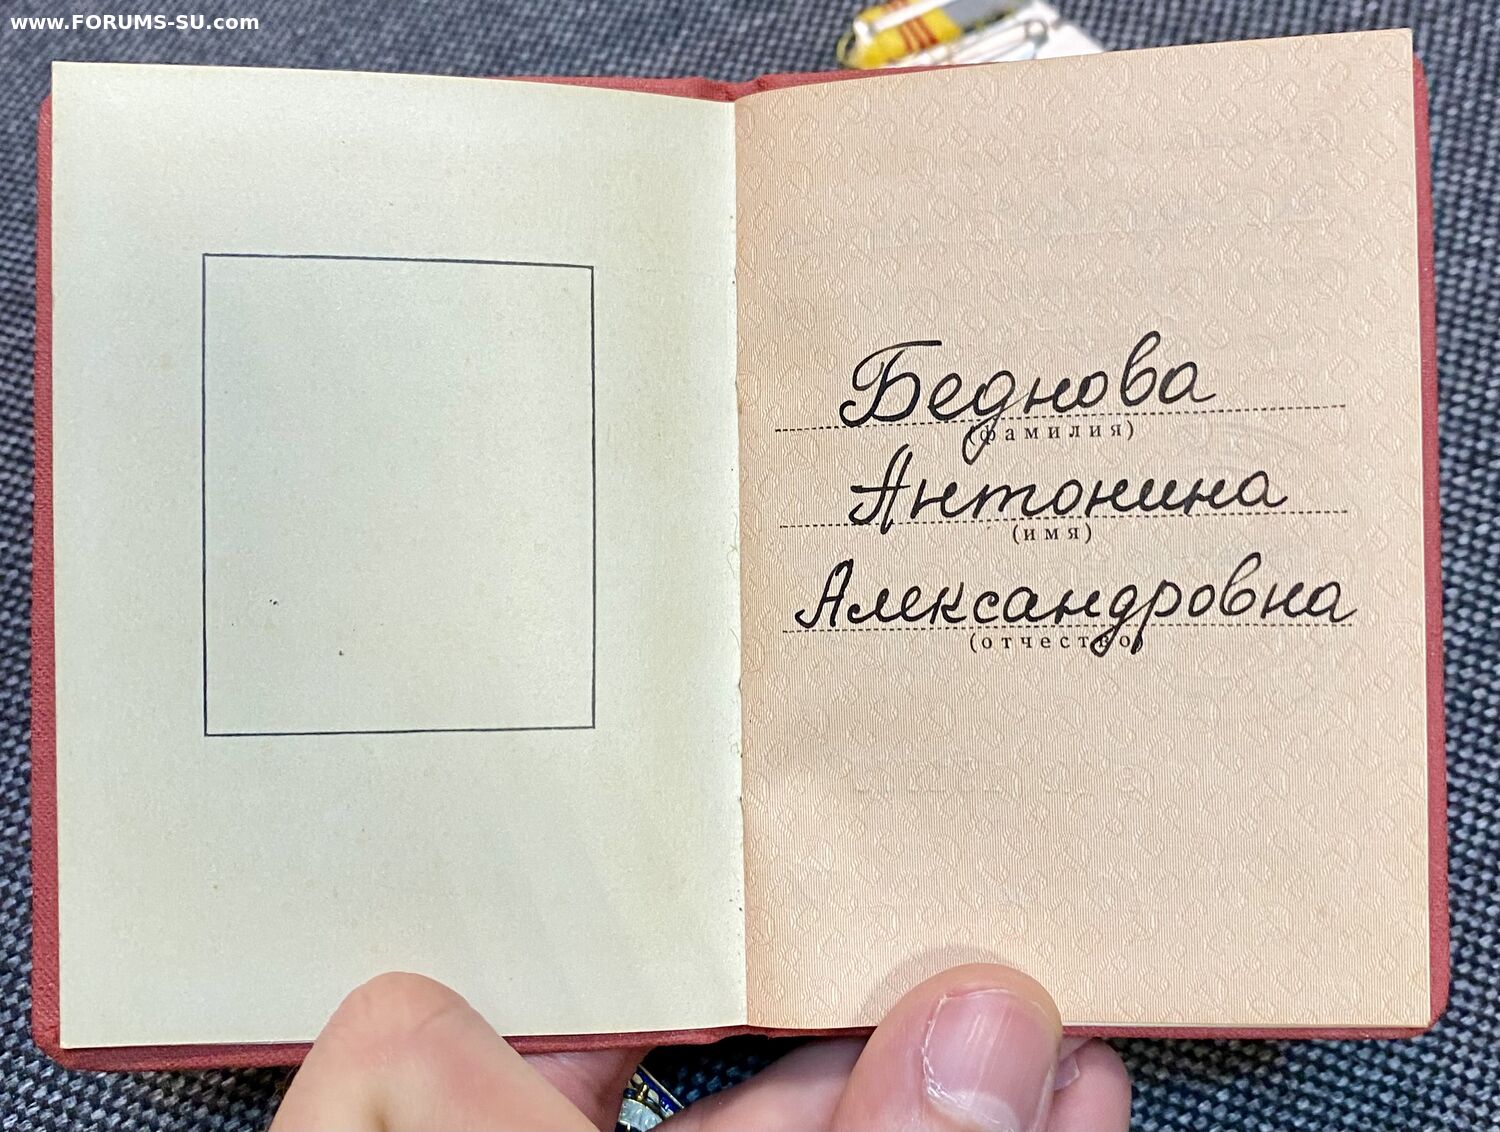 www.FORUMS-SU.com
Беднова
(фамилия)
Антонина
(имя)
Александровна
(отчество)